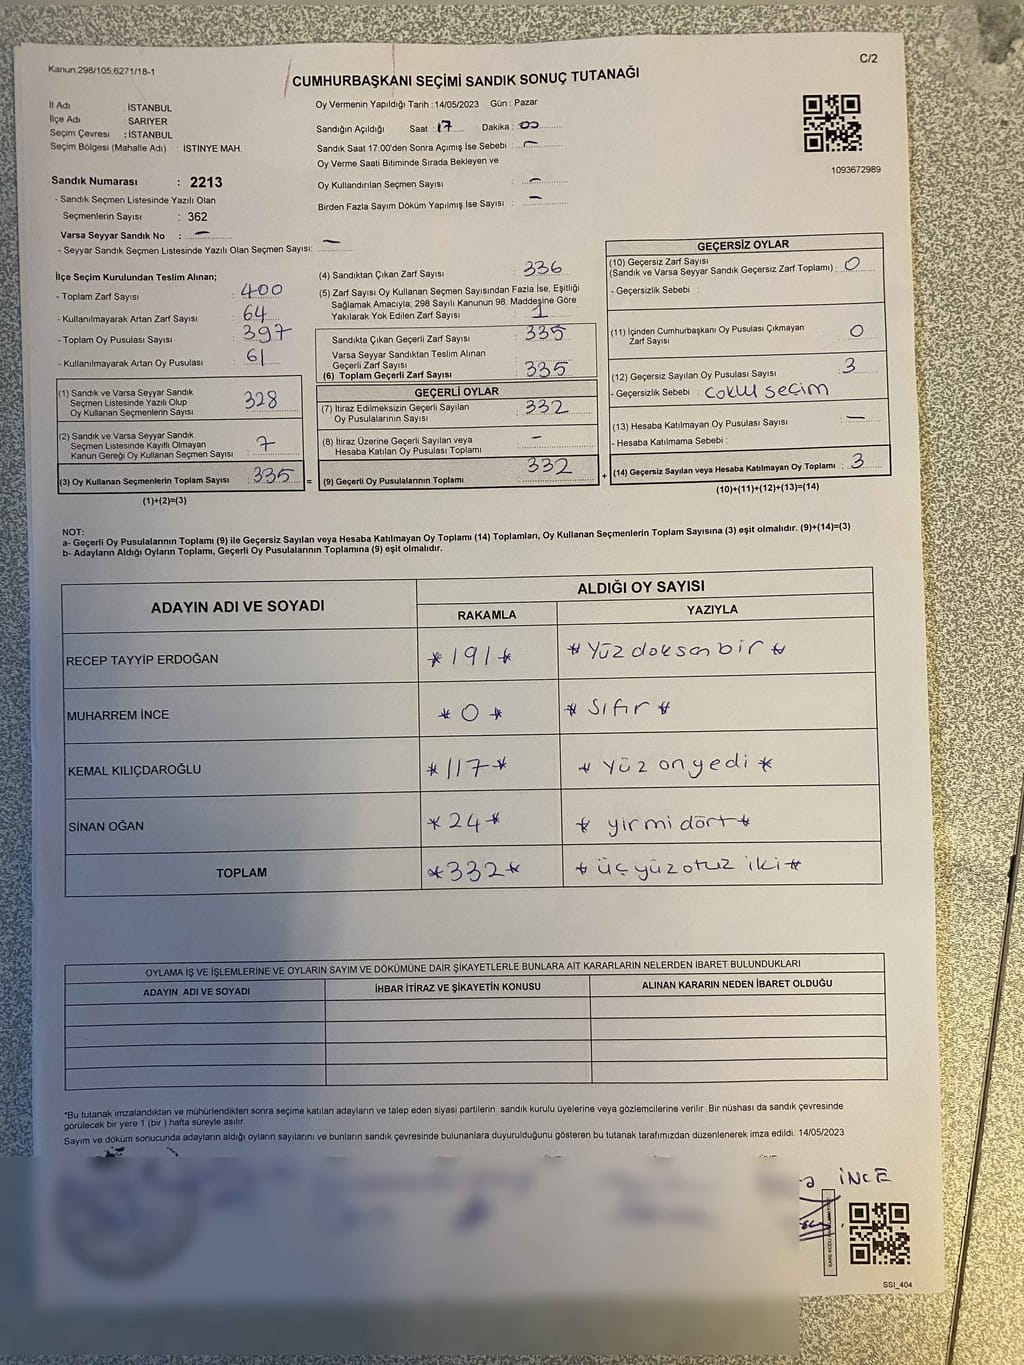 Kanun:298/105;6271/18-1
C/2
CUMHURBAŞKANI SEÇİMİ SANDIK SONUÇ TUTANAĞI
İl Adı : İSTANBUL
İlçe Adı : SARIYER
Seçim Çevresi : İSTANBUL
Seçim Bölgesi (Mahalle Adı) : İSTİNYE MAH.
Sandık Numarası : 2213
- Sandık Seçmen Listesinde Yazılı Olan
Seçmenlerin Sayısı : 362
Varsa Seyyar Sandık No : -
- Seyyar Sandık Seçmen Listesinde Yazılı Olan Seçmen Sayısı: -
Oy Vermenin Yapıldığı Tarih : 14/05/2023 Gün : Pazar
Sandığın Açıldığı Saat : 17 Dakika : 00
Sandık Saat 17:00'den Sonra Açımış İse Sebebi : -
Oy Verme Saati Bitiminde Sırada Bekleyen ve
Oy Kullandırılan Seçmen Sayısı : -
Birden Fazla Sayım Döküm Yapılmış İse Sayısı : -
1093672989
İlçe Seçim Kurulundan Teslim Alınan;
- Toplam Zarf Sayısı : 400
- Kullanılmayarak Artan Zarf Sayısı : 64
- Toplam Oy Pusulası Sayısı : 397
- Kullanılmayarak Artan Oy Pusulası : 61
(1) Sandık ve Varsa Seyyar Sandık
Seçmen Listesinde Yazılı Olup
Oy Kullanan Seçmenlerin Sayısı : 328
(2) Sandık ve Varsa Seyyar Sandık
Seçmen Listesinde Kayıtlı Olmayan
Kanun Gereği Oy Kullanan Seçmen Sayısı : 7
(3) Oy Kullanan Seçmenlerin Toplam Sayısı : 335 =
(1)+(2)=(3)
(4) Sandıktan Çıkan Zarf Sayısı : 336
(5) Zarf Sayısı Oy Kullanan Seçmen Sayısından Fazla İse, Eşitliği
Sağlamak Amacıyla, 298 Sayılı Kanunun 98. Maddesine Göre
Yakılarak Yok Edilen Zarf Sayısı : 1
Sandıkta Çıkan Geçerli Zarf Sayısı : 335
Varsa Seyyar Sandıktan Teslim Alınan
Geçerli Zarf Sayısı
(6) Toplam Geçerli Zarf Sayısı : 335
GEÇERLİ OYLAR
(7) İtiraz Edilmeksizin Geçerli Sayılan
Oy Pusulalarının Sayısı : 332
(8) İtiraz Üzerine Geçerli Sayılan veya
Hesaba Katılan Oy Pusulası Toplamı : -
(9) Geçerli Oy Pusulalarının Toplamı : 332 +
GEÇERSİZ OYLAR
(10) Geçersiz Zarf Sayısı
(Sandık ve Varsa Seyyar Sandık Geçersiz Zarf Toplamı) : 0
- Geçersizlik Sebebi :
(11) İçinden Cumhurbaşkanı Oy Pusulası Çıkmayan
Zarf Sayısı 0
(12) Geçersiz Sayılan Oy Pusulası Sayısı : 3
- Geçersizlik Sebebi : Çoklu seçim
(13) Hesaba Katılmayan Oy Pusulası Sayısı : -
- Hesaba Katılmama Sebebi :
(14) Geçersiz Sayılan veya Hesaba Katılmayan Oy Toplamı : 3
(10)+(11)+(12)+(13)=(14)
NOT:
a- Geçerli Oy Pusulalarının Toplamı (9) ile Geçersiz Sayılan veya Hesaba Katılmayan Oy Toplamı (14) Toplamları, Oy Kullanan Seçmenlerin Toplam Sayısına (3) eşit olmalıdır. (9)+(14)=(3)
b- Adayların Aldığı Oyların Toplamı, Geçerli Oy Pusulalarının Toplamına (9) eşit olmalıdır.
ADAYIN ADI VE SOYADI
ALDIĞI OY SAYISI
RAKAMLA YAZIYLA
RECEP TAYYİP ERDOĞAN *191* *Yüzdoksanbir*
MUHARREM İNCE *0* *Sıfır*
KEMAL KILIÇDAROĞLU *117* *Yüz onyedi*
SİNAN OĞAN *24* *yirmidört*
TOPLAM *332* *üçyüzotuz iki*
OYLAMA İŞ VE İŞLEMLERİNE VE OYLARIN SAYIM VE DÖKÜMÜNE DAİR ŞİKAYETLERLE BUNLARA AİT KARARLARIN NELERDEN İBARET BULUNDUKLARI
ADAYIN ADI VE SOYADI İHBAR İTİRAZ VE ŞİKAYETİN KONUSU ALINAN KARARIN NEDEN İBARET OLDUĞU
*Bu tutanak imzalandıktan ve mühürlendikten sonra seçime katılan adayların ve talep eden siyasi partilerin sandık kurulu üyelerine veya gözlemcilerine verilir .Bir nüshası da sandık çevresinde
görülecek bir yere 1 (bir ) hafta süreyle asılır.
Sayım ve döküm sonucunda adayların aldığı oyların sayılarını ve bunların sandık çevresinde bulunanlara duyurulduğunu gösteren bu tutanak tarafımızdan düzenlenerek imza edildi. 14/05/2023
İNCE
SSI_404